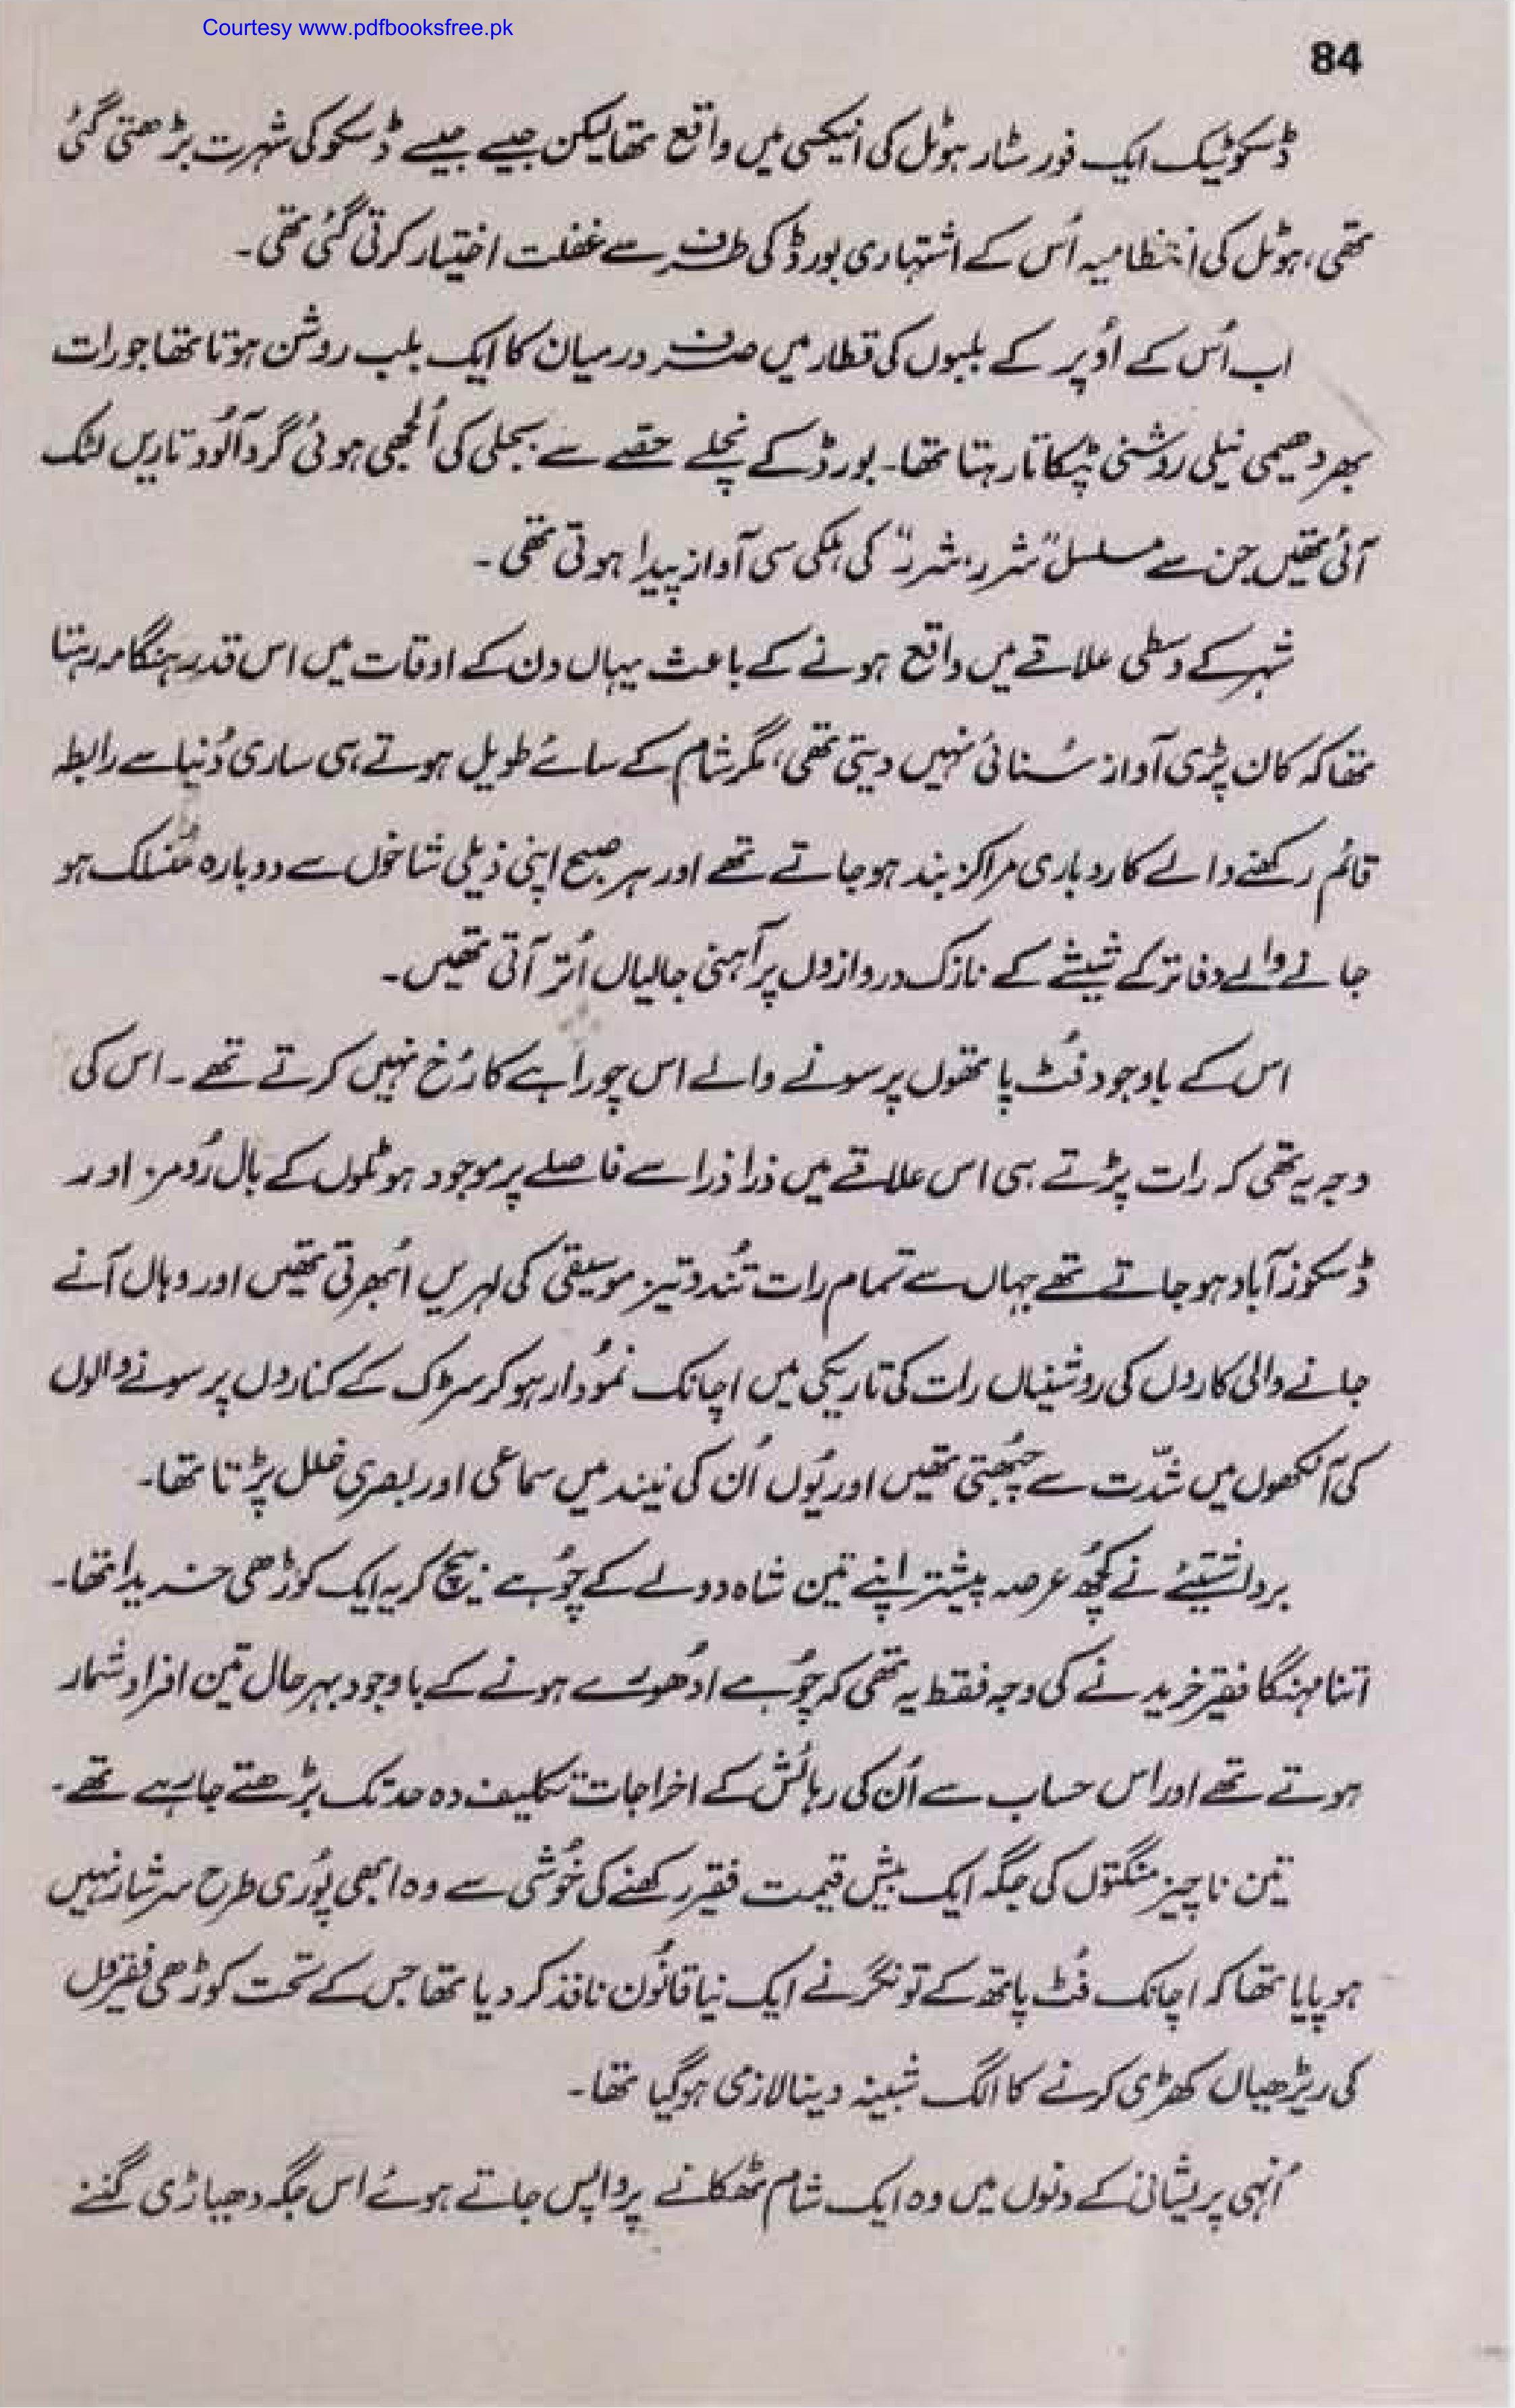 Courtesy www.pdfbooksfree.pk
84
ڈسکوٹیک ایک فور سٹار ہوٹل کی انیکسی میں واقع تھا لیکن جیسے جیسے ڈسکو کی شہرت بڑھتی گئی
تھی، ہوٹل کی انتظامیہ اُس کے اشتہاری بورڈ کی طرف سے غفلت اختیار کرتی گئی تھی۔
اب اُس کے اُوپر کے بلبوں کی قطار میں صرف درمیان کا ایک بلب روشن ہوتا تھا جو رات
بھر دھیمی نیلی روشنی ٹپکاتا رہتا تھا۔ بورڈ کے نچلے حصّے سے بجلی کی اُلجھی ہوئی گرد آلُود تاریں لٹک
آئی تھیں جن سے مسلسل ”شرر، شرر“ کی ہلکی سی آواز پیدا ہوتی تھی۔
شہر کے وسطی علاقے میں واقع ہونے کے باعث یہاں دن کے اوقات میں اس قدر ہنگامہ رہتا
تھا کہ کان پڑی آواز سُنائی نہیں دیتی تھی، مگر شام کے سائے طویل ہوتے ہی ساری دُنیا سے رابطہ
قائم رکھنے والے کاروباری مراکز بند ہو جاتے تھے اور ہر صبح اپنی ذیلی شاخوں سے دوبارہ مُنسلک ہو
جانے والے دفاتر کے شیشے کے نازک دروازوں پر آہنی جالیاں اُتر آتی تھیں۔
اس کے باوجود فُٹ پاتھوں پر سونے والے اس چوراہے کا رُخ نہیں کرتے تھے۔ اس کی
وجہ یہ تھی کہ رات پڑتے ہی اس علاقے میں ذرا ذرا سے فاصلے پر موجود ہوٹلوں کے بال رُومز اور
ڈسکوز آباد ہو جاتے تھے جہاں سے تمام رات تُند و تیز موسیقی کی لہریں اُبھرتی تھیں اور وہاں آنے
جانے والی کاروں کی روشنیاں رات کی تاریکی میں اچانک نمُودار ہو کر سڑک کے کناروں پر سونے والوں
کی آنکھوں میں شدّت سے چُبھتی تھیں اور یُوں اُن کی نیند میں سماعی اور بصری خلل پڑتا تھا۔
نے کُچھ عرصہ پیشتر اپنے تین شاہ دولے کے چُوہے بیچ کر یہ ایک کوڑھی خریدا تھا۔
اتنا مہنگا فقیر خریدنے کی وجہ فقط یہ تھی کہ چُوہے ادُھورے ہونے کے باوجود بہرحال تین افراد شمار
ہوتے تھے اور اس حساب سے اُن کی رہائش کے اخراجات تکلیف دہ حد تک بڑھتے جا رہے تھے۔
تین ناچیز منگتوں کی جگہ ایک بیش قیمت فقیر رکھنے کی خُوشی سے وہ ابھی پُوری طرح سرشار نہیں
ہو پایا تھا کہ اچانک فُٹ پاتھ کے تونگر نے ایک نیا قانُون نافذ کر دیا تھا جس کے تحت کوڑھی فقیروں
کی ریڑھیاں کھڑی کرنے کا الگ شبینہ دینا لازمی ہو گیا تھا۔
اُنہی پریشانی کے دنوں میں وہ ایک شام ٹھکانے پر واپس جاتے ہوئے اس جگہ دھیاڑی گننے